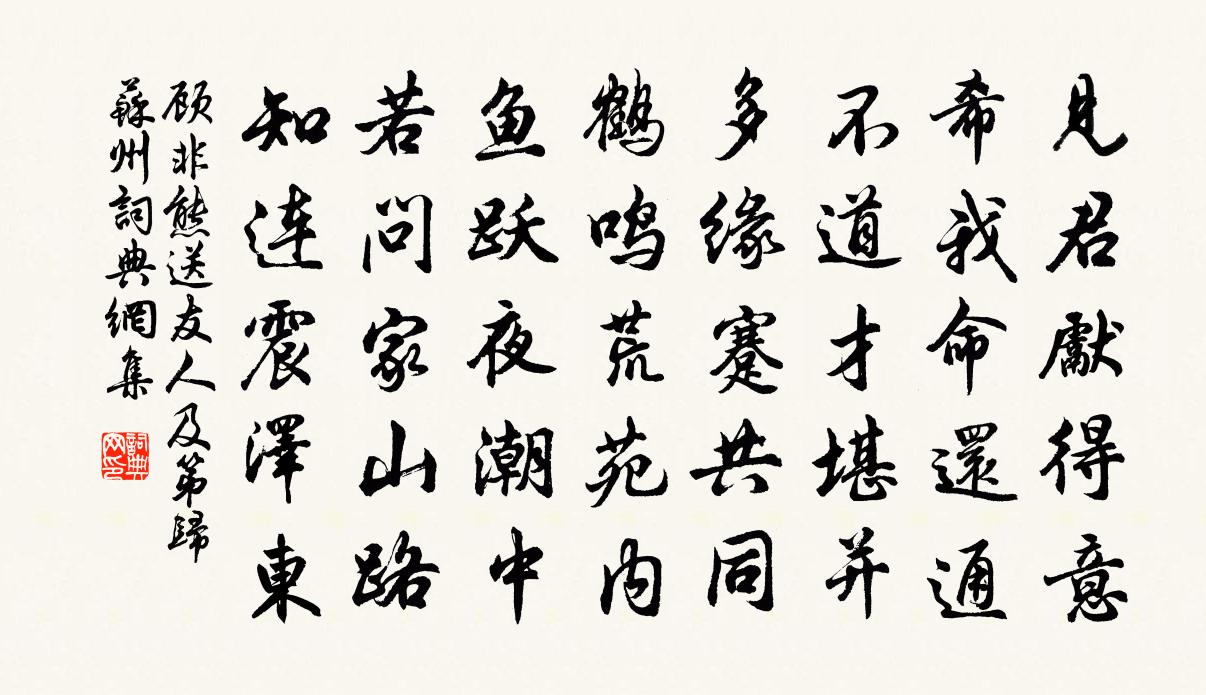 見君獻得意
希我命還通
不道才堪并
多缘蹇共同
鶴鸣荒苑内
鱼跃夜潮中
若问家山路
知连震澤東
顾非熊送友人及第歸
蘇州詞典網集
詞典网印